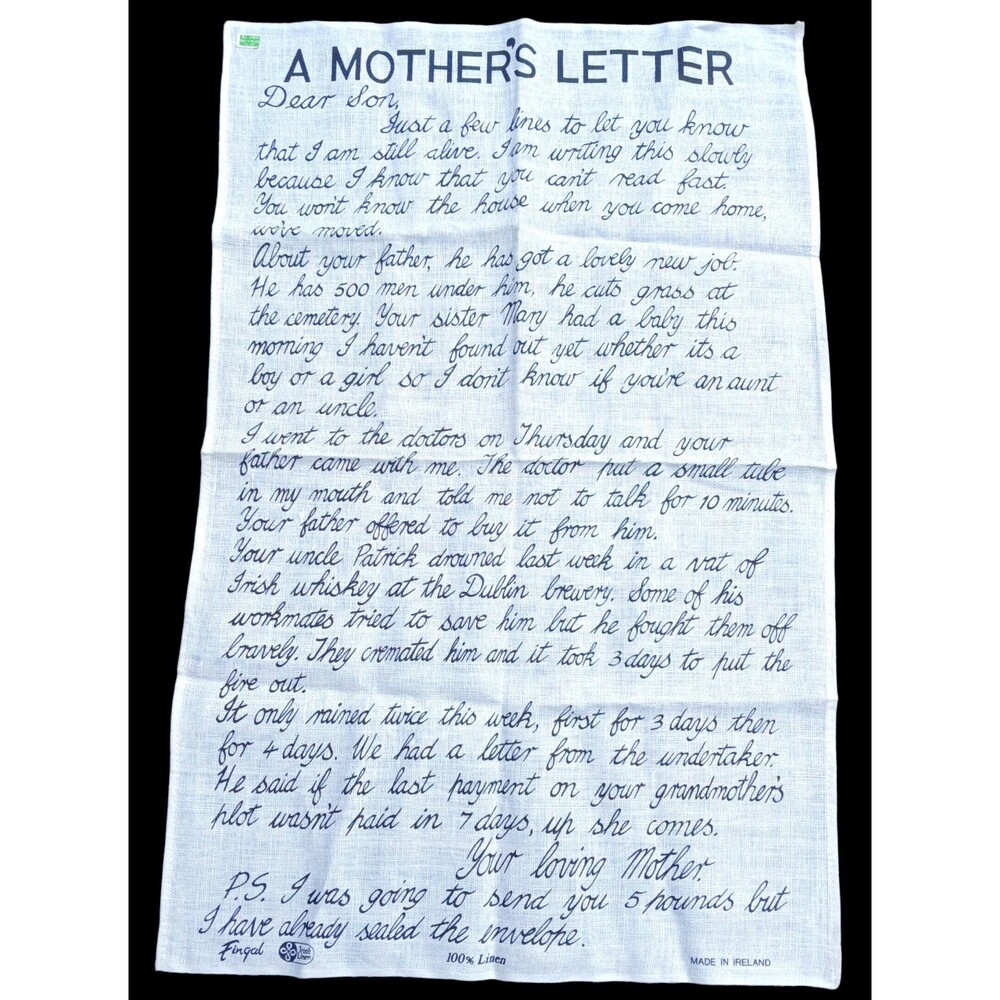 A MOTHER'S LETTER
Dear Son,
Just a few lines to let you know
that I am still alive. I am writing this slowly
because I know that you can't read fast.
You won't know the house when you come home,
we've moved.
About your father, he has got a lovely new job.
He has 500 men under him, he cuts grass at
the cemetery. Your sister Mary had a baby this
morning I haven't found out yet whether its a
boy or a girl so I don't know if you're an aunt
or an uncle.
I went to the doctors on Thursday and your
father came with me. The doctor put a small tube
in my mouth and told me not to talk for 10 minutes.
Your father offered to buy it from him.
Your uncle Patrick drowned last week in a vat of
Irish whiskey at the Dublin brewery. Some of his
workmates tried to save him but he fought them off
bravely. They cremated him and it took 3 days to put the
fire out.
It only rained twice this week, first for 3 days then
for 4 days. We had a letter from the undertaker.
He said if the last payment on your grandmother's
plot wasn't paid in 7 days, up she comes.
Your loving Mother.
P.S. I was going to send you 5 pounds but
I have already sealed the envelope.
Fingal Irish Linen 100% Linen MADE IN IRELAND